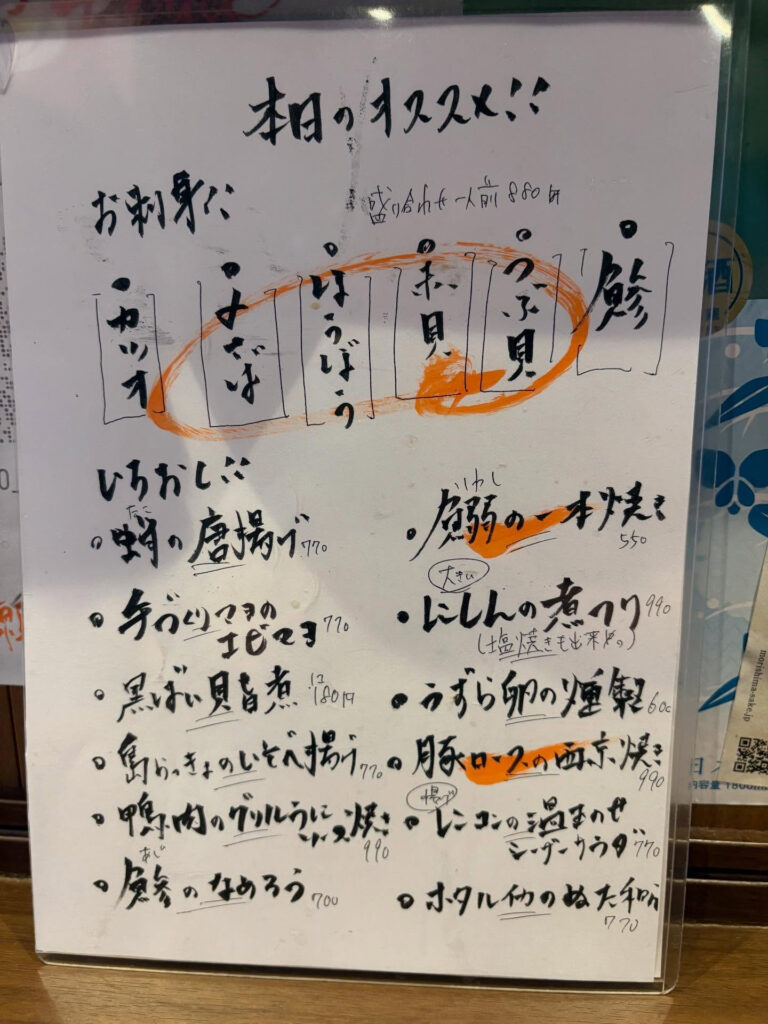 本日のオススメ!!
お刺身!!
盛り合わせ 一人前 880円
・鯵
・つぶ貝
・赤貝
・ほうぼう
・〆さば
・カツオ
いちおし!!
たこ
蛸の唐揚げ 770
手づくりマヨの
エビマヨ 770
黒ばい貝旨煮 1コ180円
島らっきょのいそべ揚げ 770
鴨肉のグリルうに
ソース焼き 990
あじ
鯵のなめろう 700
いわし
鰯の一本焼き 550
大きい
にしんの煮つけ 990
(塩焼きも出来ₘの)
うずら卵の燻製 600
豚ロースの西京焼き 990
揚げ
レンコンの温玉のせ
シーザーサラダ 770
ホタルイカのぬた和え
770
morishima-sake.jp
酒